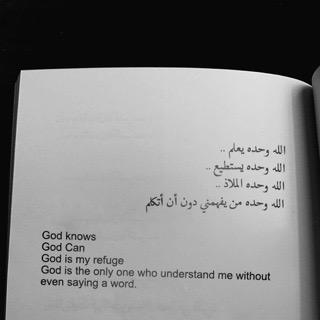 الله وحده يعلم ..
الله وحده يستطيع ..
الله وحده الملاذ ..
الله وحده من يفهمني دون أن أتكلم
God knows
God Can
God is my refuge
God is the only one who understand me without
even saying a word.